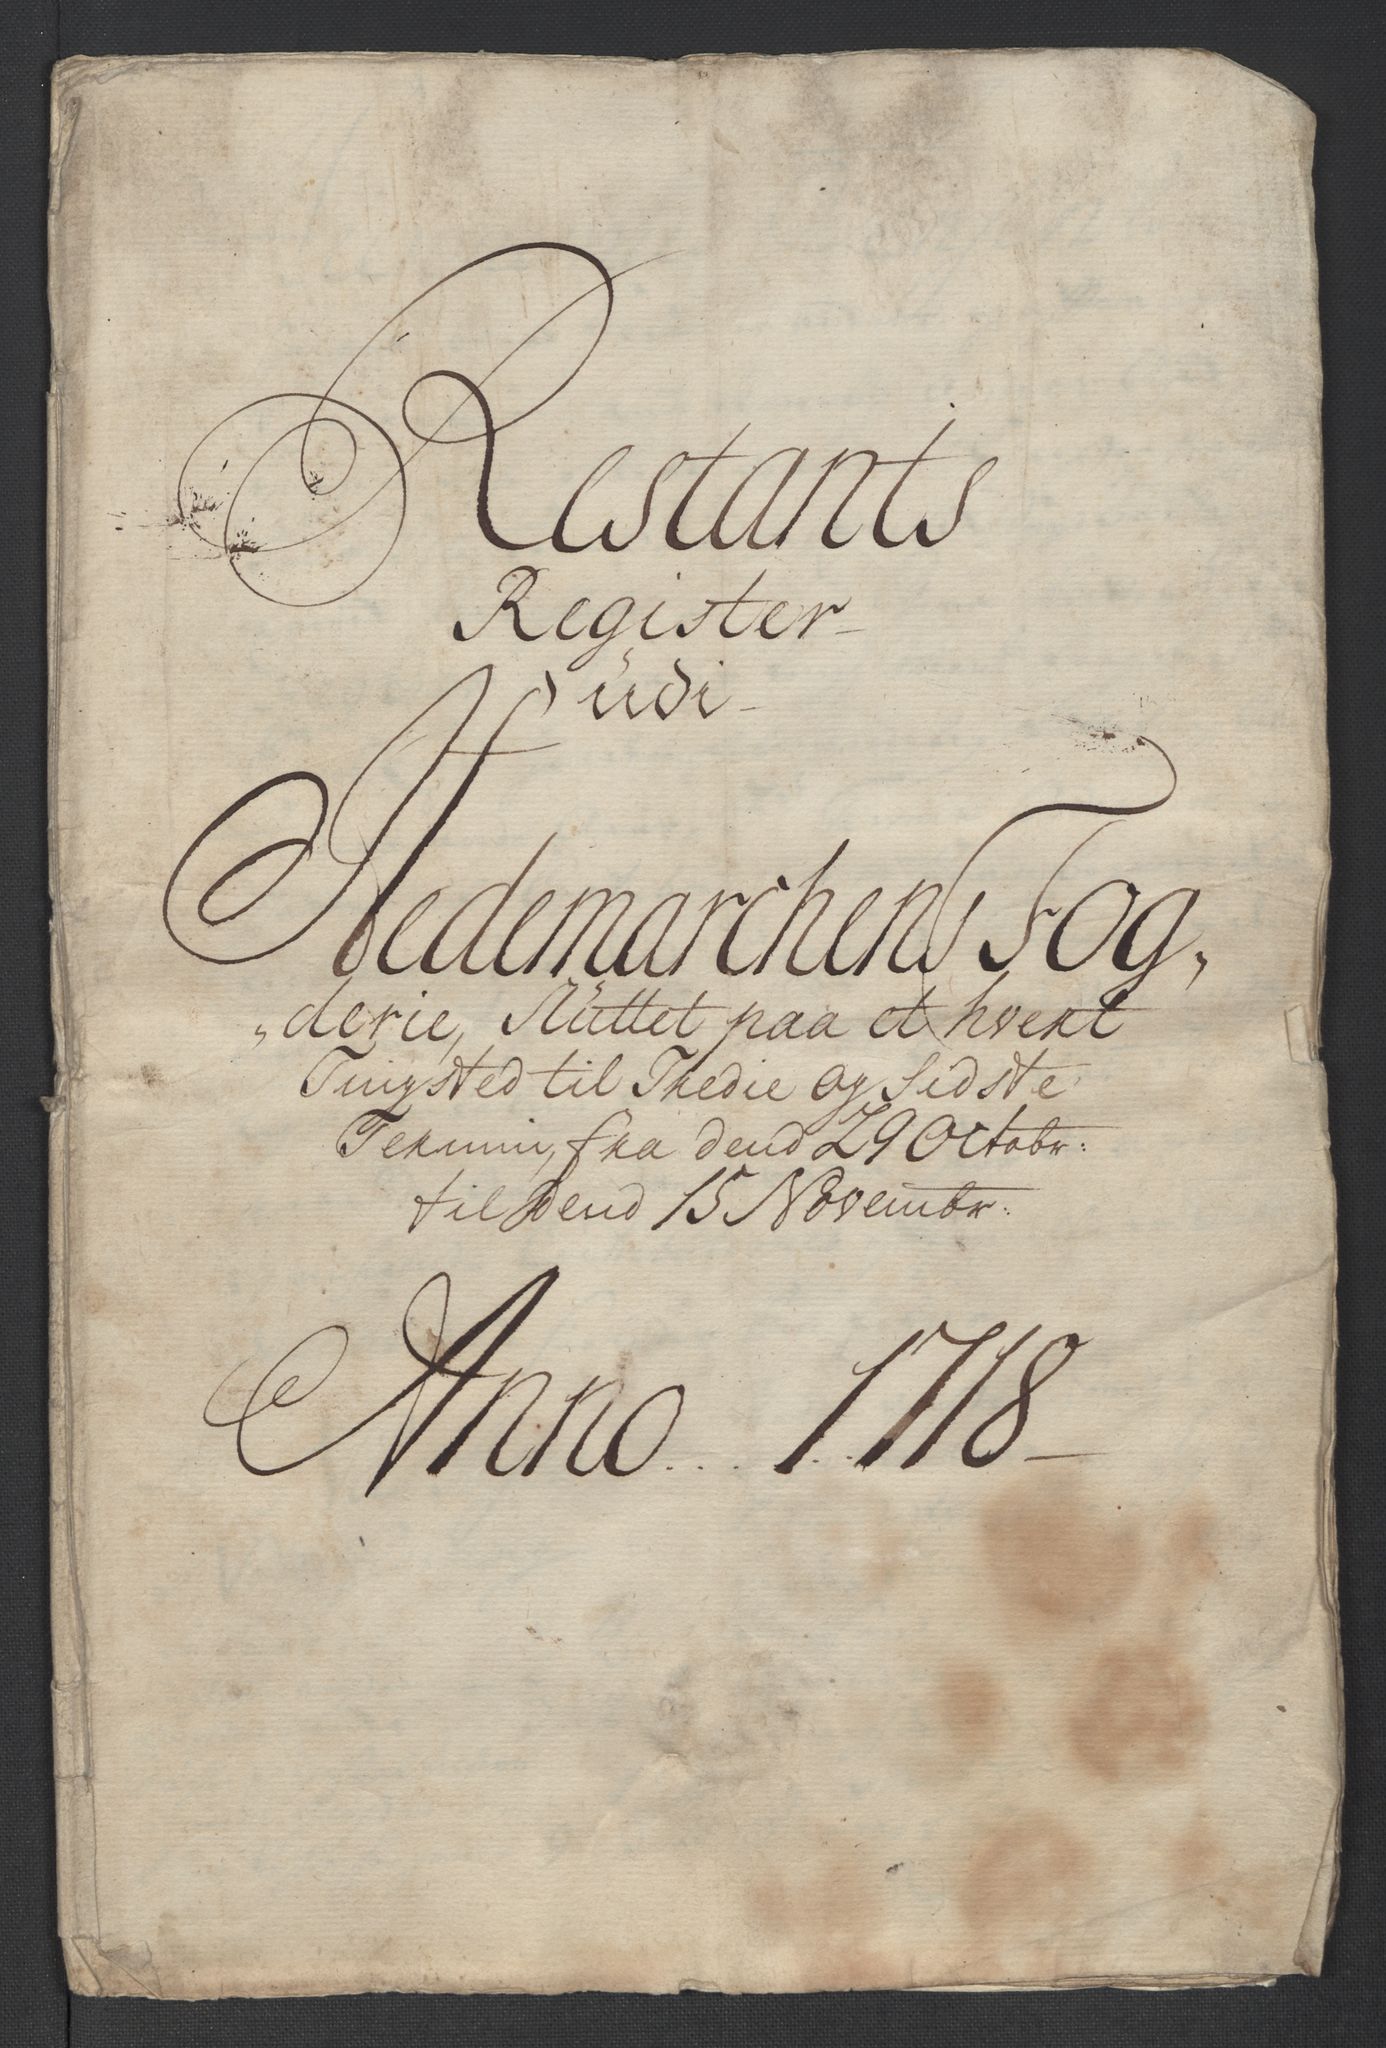 Restants
Register
üdi
Hedemarchens Fog-
-derie, Slüttet paa et hvert
Tingsted til Tredie og Sidste
Termin, fra dend 29 Octobr:
til dend 15 Novembr:
Anno 1718